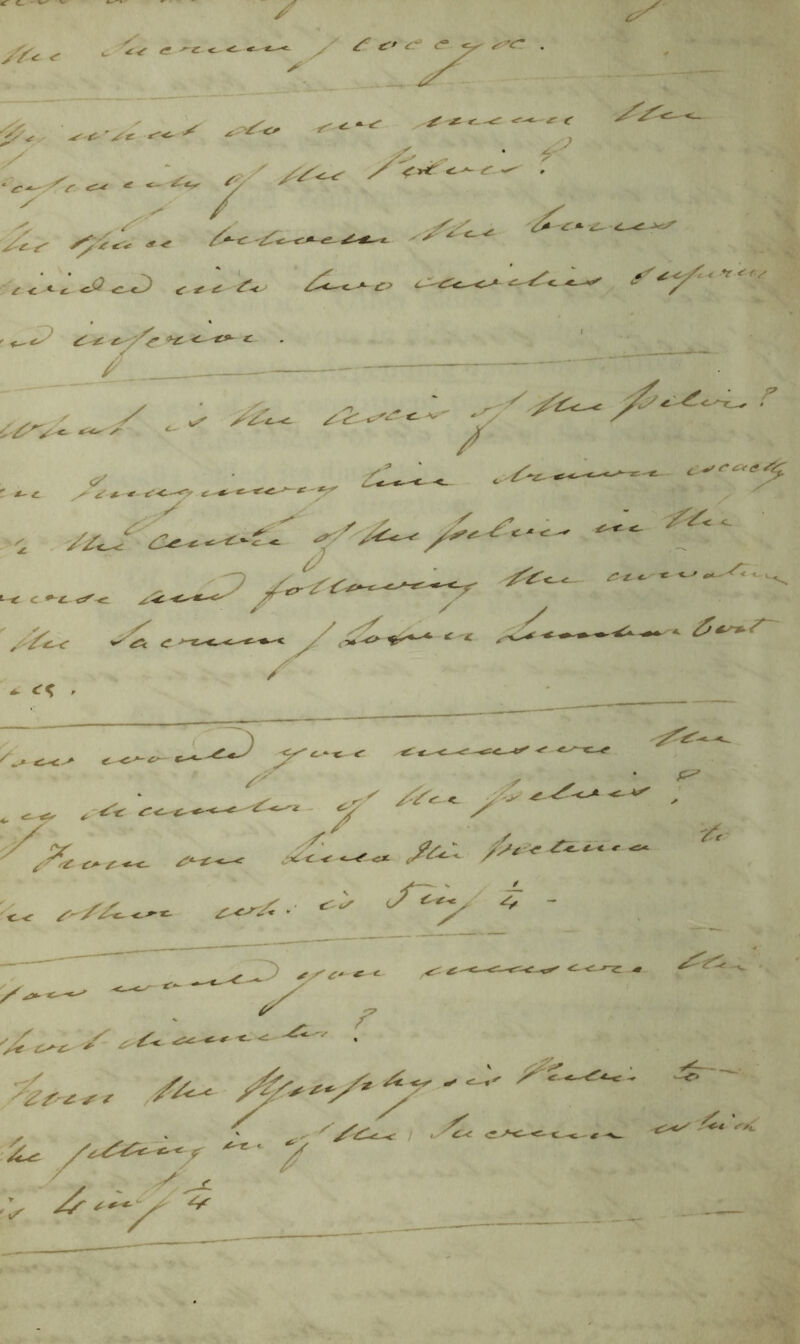 the Sacrum / Coccyx.
By what do we mean the
capacity of the Pelvis?
The space between the bones
divided into two cavities superior
and inferior.
What is the axis of the pelvis?
an Imaginary line drawn exactly
the Centre of the pelvis in the
course and following the curvature
the Sacrum /
How would you measure the
long diameter of the pelvis?
From one linea ilio pectinea to
the other wh. is 5 in/ 1/4 -
How would you measure the
short diameter?
from the Symphysis Pubis to
the jutting in of the Sacrum which
is 4 in/ 1/4